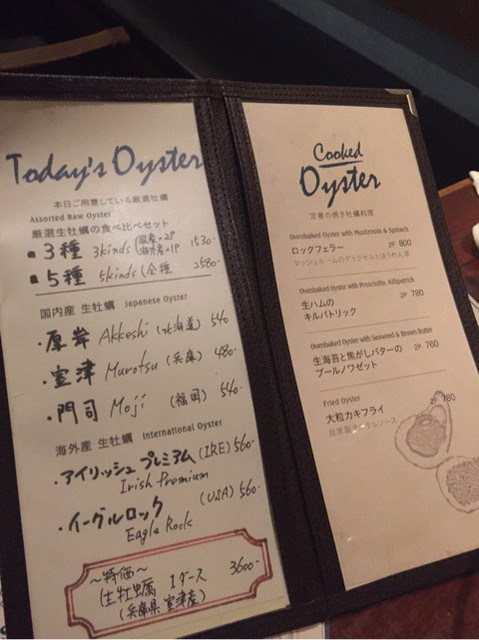 Today's Oyster
本日ご用意している厳選牡蠣
Assorted Raw Oyster
厳選生牡蠣の食べ比べセット
3種 3kinds (国産×2P 海外産×1P 1530-
5種 5kinds (全種 2580-
国内産 生牡蠣 Japanese Oyster
・厚岸 Akkeshi (北海道) 540
・室津 Murotsu (兵庫) 480-
・門司 Moji (福岡) 540-
海外産 生牡蠣 International Oyster
・アイリッシュ プレミアム (IRE) 560-
Irish Premium
・イーグルロック (USA) 560-
Eagle Rock
～特価～
生牡蠣 1ダース 3600-
(兵庫県 室津産)
Cooked
Oyster
定番の焼き牡蠣料理
Ovenbaked Oyster with Mushroom & Spinach
ロックフェラー 2P 800
マッシュルームのデュクセルとほうれん草
Ovenbaked Oyster with Prosciutto, Killipatrick
生ハムの
キルパトリック 2P 780
Ovenbaked Oyster with Seaweed & Brown Butter
生海苔と焦がしバターの
ブールノワゼット 2P 760
Fried Oyster
大粒カキフライ 2P 780
自家製タルタルソース